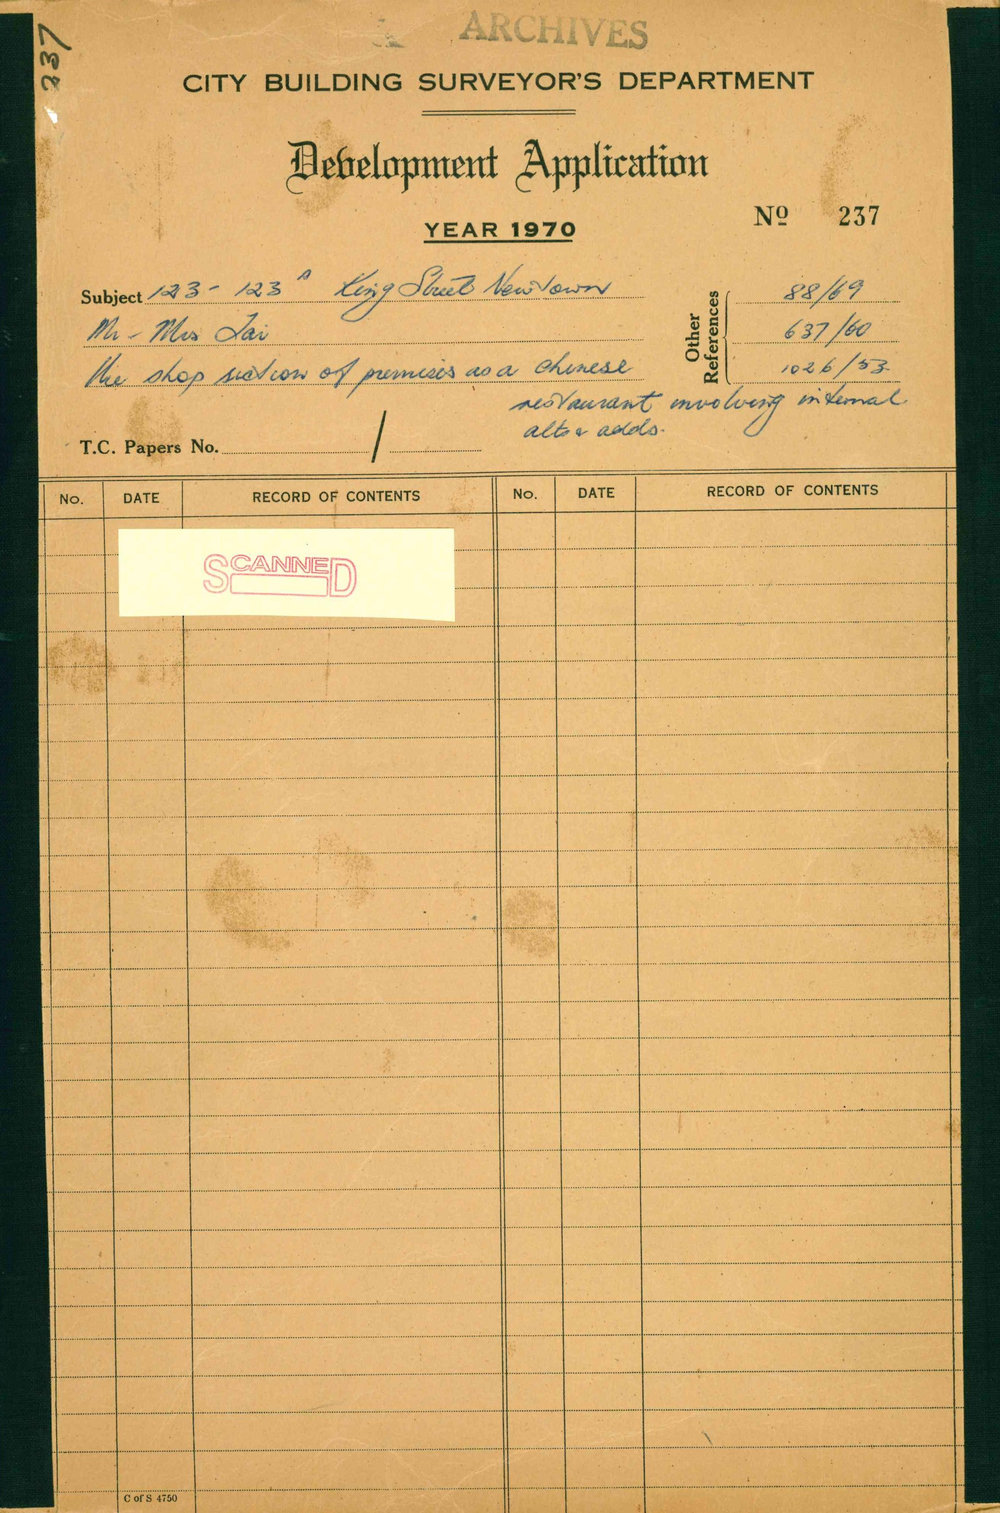 ARCHIVES
237
CITY BUILDING SURVEYOR'S DEPARTMENT
Development Application
YEAR 1970
Nº 237
Subject 123 - 123 A King Street Newtown
Mr - Mrs Lai
the shop section of premises as a chinese
restaurant involving internal
alts & adds.
Other References
88/69
637/60
1026/53
T.C. Papers No. /
No. DATE RECORD OF CONTENTS No. DATE RECORD OF CONTENTS
SCANNED
C of S 4750